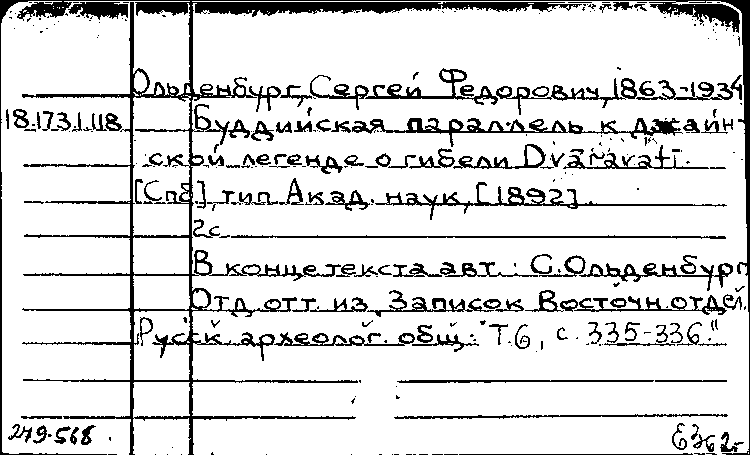 Ольденбург, Сергей Федорович, 1863-1934
18.173.1.118 Буддийская параллель к джайн-
ской легенде о гибели Dvāravatī.
[Спб], тип Акад. наук, [1892].
2с
В конце текста авт.: С. Ольденбург
Отд. отт. из "Записок Восточн. отдел.
Русск. археолог. общ." Т.6, с. 335-336."
249-568